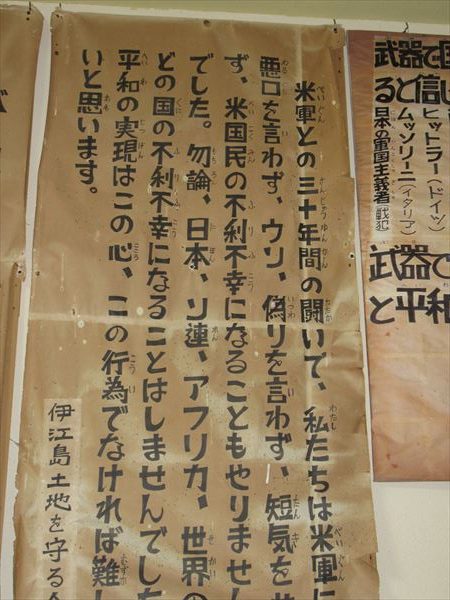 武器で国
ると信じ
ヒットラー(ドイツ)
ムッソリーニ(イタリア)
日本の軍国主義者 戦犯
武器で
と平和
米軍との三十年間の闘いで、私たちは米軍に
悪口を言わず、ウソ、偽りを言わず、短気をせ
ず、米国民の不利不幸になることもやりません
でした。勿論、日本、ソ連、アフリカ、世界の
どの国の不利不幸になることはしませんでした
平和の実現はこの心、この行為でなければ難し
いと思います。
伊江島土地を守る会